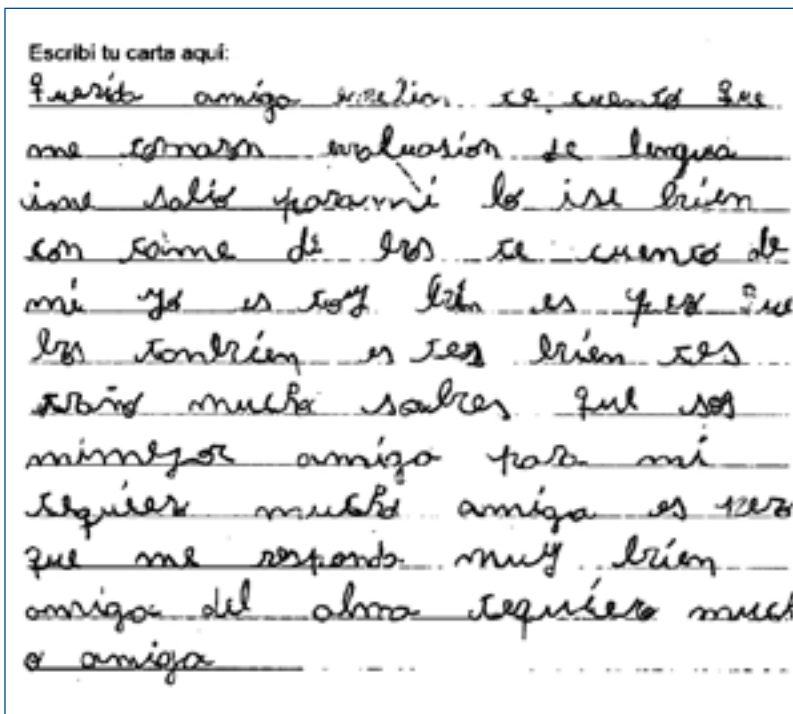 Escribí tu carta aquí:
querida amiga te cuento que
me tomaron evaluasion de lengua
ime salio para mí lo ise bien
con taime de bos te cuento de
mí yo es toy bien es pero que
bos tonbien es tes bien tes
traño mucho sabes que sos
mimejor amiga para mí
tequiero mucho amiga es pero
que me responda muy bien
amiga del alma tequiero much
o amiga